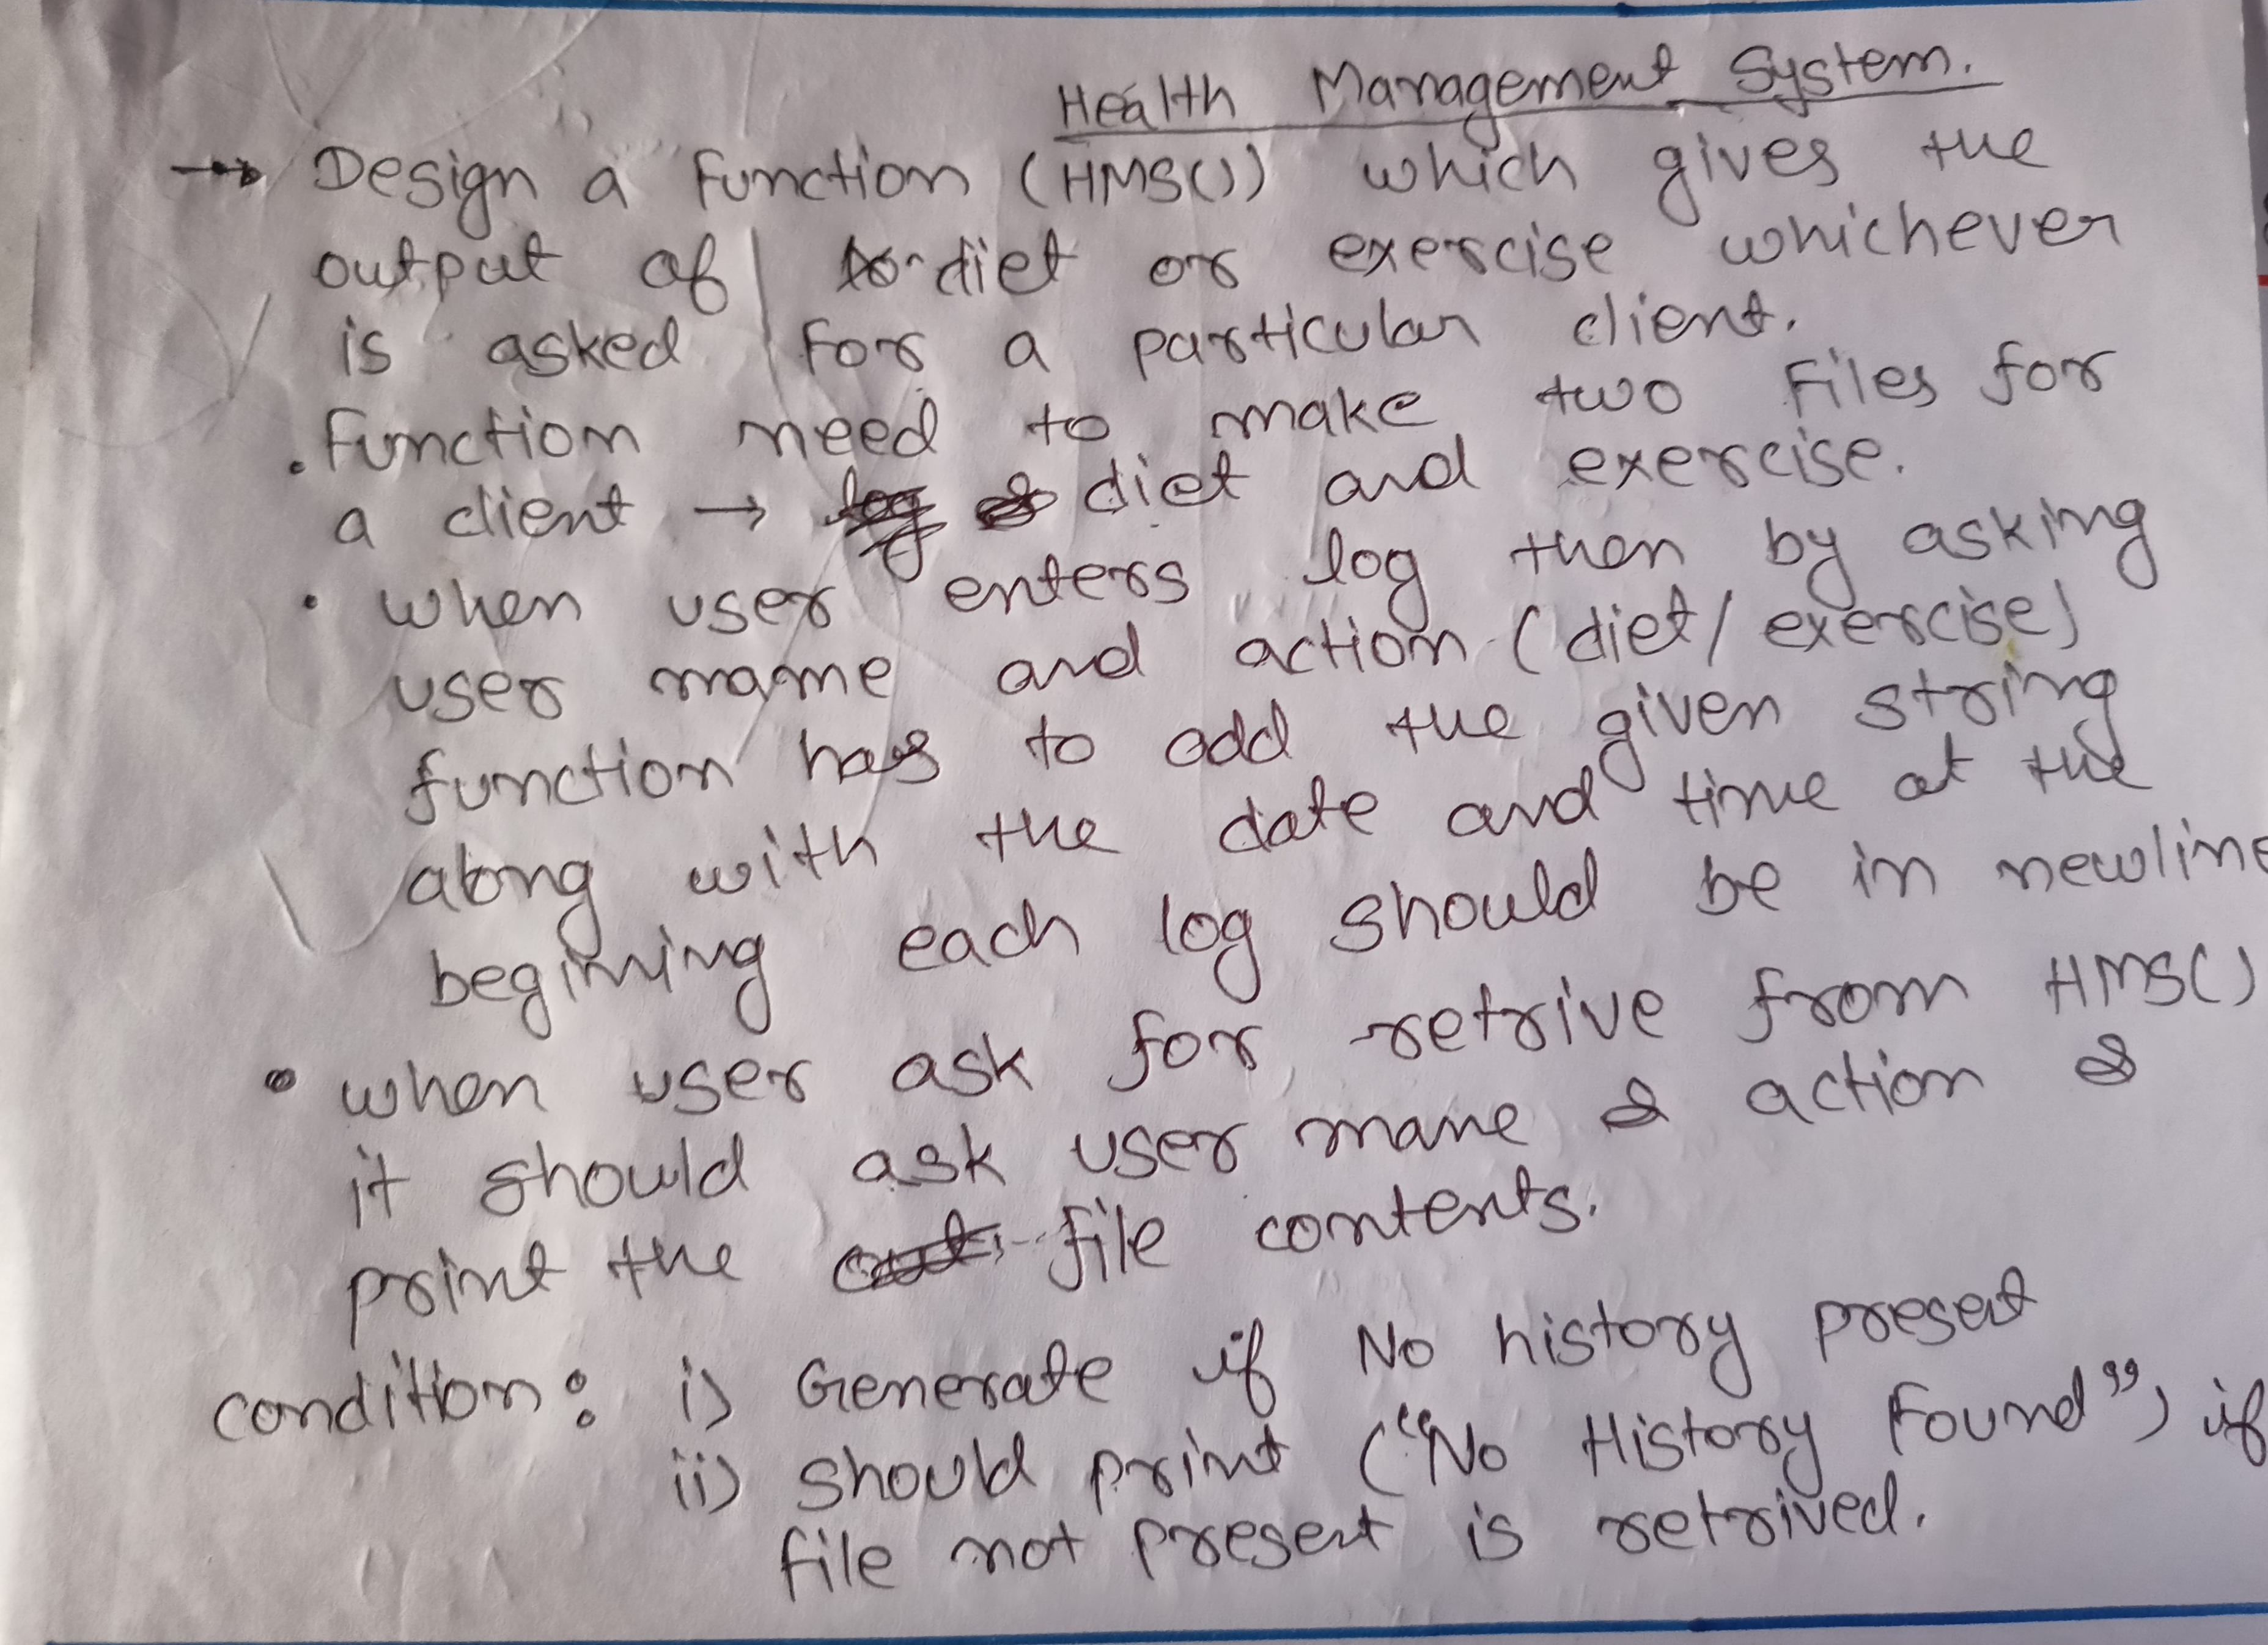 Health Management System.
→ Design a function (HMS()) which gives the
output of diet or exercise whichever
is asked for a particular client.
• function need to make two files for
a client → diet and exercise.
• when user enters log then by asking
user name and action (diet/exercise)
function has to add the given string
along with the date and time at the
begining each log should be in newline
• when user ask for retrive from HMS()
it should ask user name & action &
print the file contents.
condition: i) Generate if No history present
ii) should print ("No History Found") if
file not present is retrived.